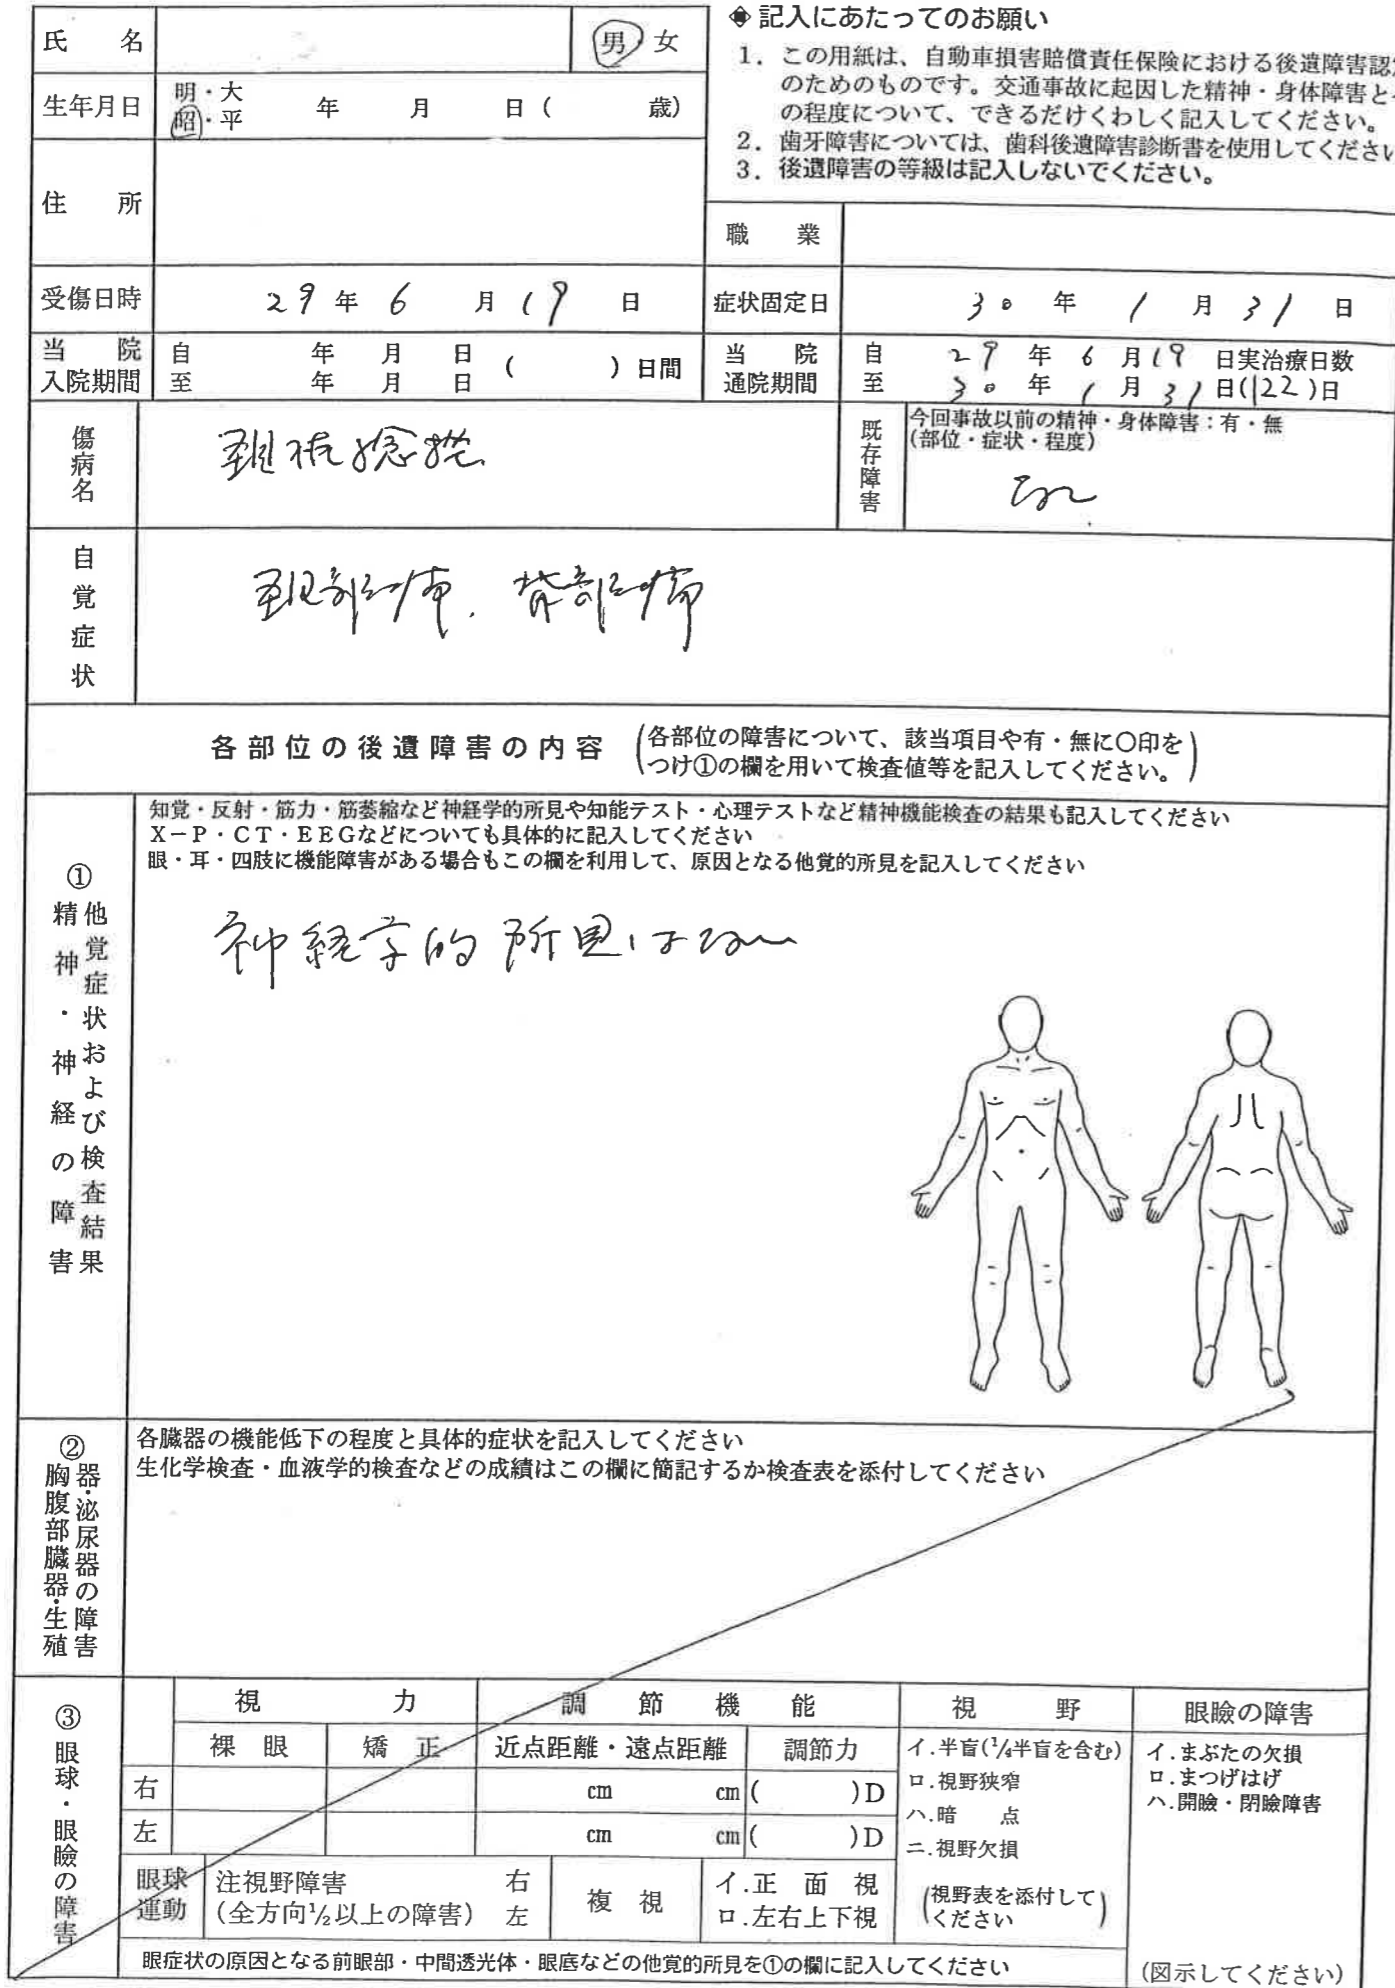 氏名 男 女
生年月日 明・大 昭・平 年 月 日（ 歳）
住所
◈ 記入にあたってのお願い
1．この用紙は、自動車損害賠償責任保険における後遺障害認
のためのものです。交通事故に起因した精神・身体障害と
の程度について、できるだけくわしく記入してください。
2．歯牙障害については、歯科後遺障害診断書を使用してください
3．後遺障害の等級は記入しないでください。
職業
受傷日時 29年 6月 19日
症状固定日 30年 1月 31日
当院入院期間 自 年 月 日 至 年 月 日 （ ）日間
当院通院期間 自 29年 6月 19日 至 30年 1月 31日 実治療日数（122）日
傷病名 頚椎捻挫
既存障害 今回事故以前の精神・身体障害：有・無
（部位・症状・程度）
なし
自覚症状 頚部痛、背部痛
各部位の後遺障害の内容
（各部位の障害について、該当項目や有・無に○印を
つけ①の欄を用いて検査値等を記入してください。）
①精神・神経の障害 他覚症状および検査結果
知覚・反射・筋力・筋萎縮など神経学的所見や知能テスト・心理テストなど精神機能検査の結果も記入してください
X－P・CT・EEGなどについても具体的に記入してください
眼・耳・四肢に機能障害がある場合もこの欄を利用して、原因となる他覚的所見を記入してください
神経学的所見はない
②胸腹部臓器・生殖器・泌尿器の障害
各臓器の機能低下の程度と具体的症状を記入してください
生化学検査・血液学的検査などの成績はこの欄に簡記するか検査表を添付してください
③眼球・眼瞼の障害
視力 調節機能 視野 眼瞼の障害
裸眼 矯正 近点距離・遠点距離 調節力
右 cm cm（ ）D
左 cm cm（ ）D
イ.半盲(¼半盲を含む)
ロ.視野狭窄
ハ.暗点
ニ.視野欠損
（視野表を添付して
ください）
イ.まぶたの欠損
ロ.まつげはげ
ハ.開瞼・閉瞼障害
（図示してください）
眼球運動 注視野障害 右
（全方向½以上の障害） 左
複視 イ.正面視
ロ.左右上下視
眼症状の原因となる前眼部・中間透光体・眼底などの他覚的所見を①の欄に記入してください